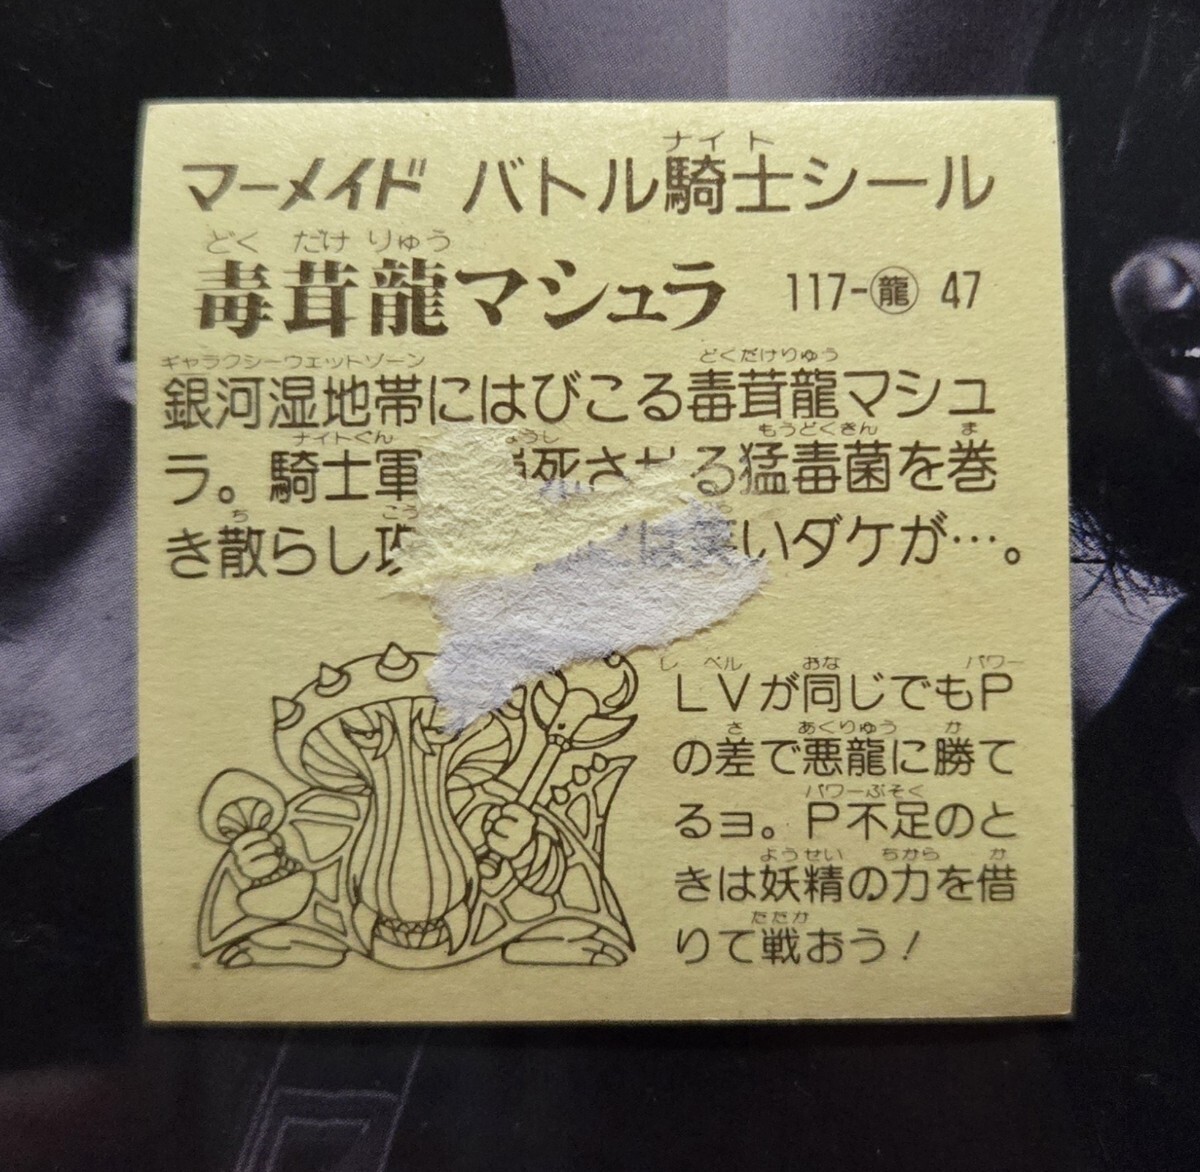 マーメイド バトル騎士シール
ナイト
毒茸龍マシュラ 117-龍 47
どく だけ りゅう
銀河湿地帯にはびこる毒茸龍マシュ
ギャラクシーウェットゾーン どくだけりゅう
ラ。騎士軍 死させる猛毒菌を巻
ナイトぐん もうどくきん ま
き散らし は笑いダケが…。
ち こう
LVが同じでもP
レベル おな パワー
の差で悪龍に勝て
さ あくりゅう か
るョ。P不足のと
パワーぶそく
きは妖精の力を借
ようせい ちから か
りて戦おう!
たたか